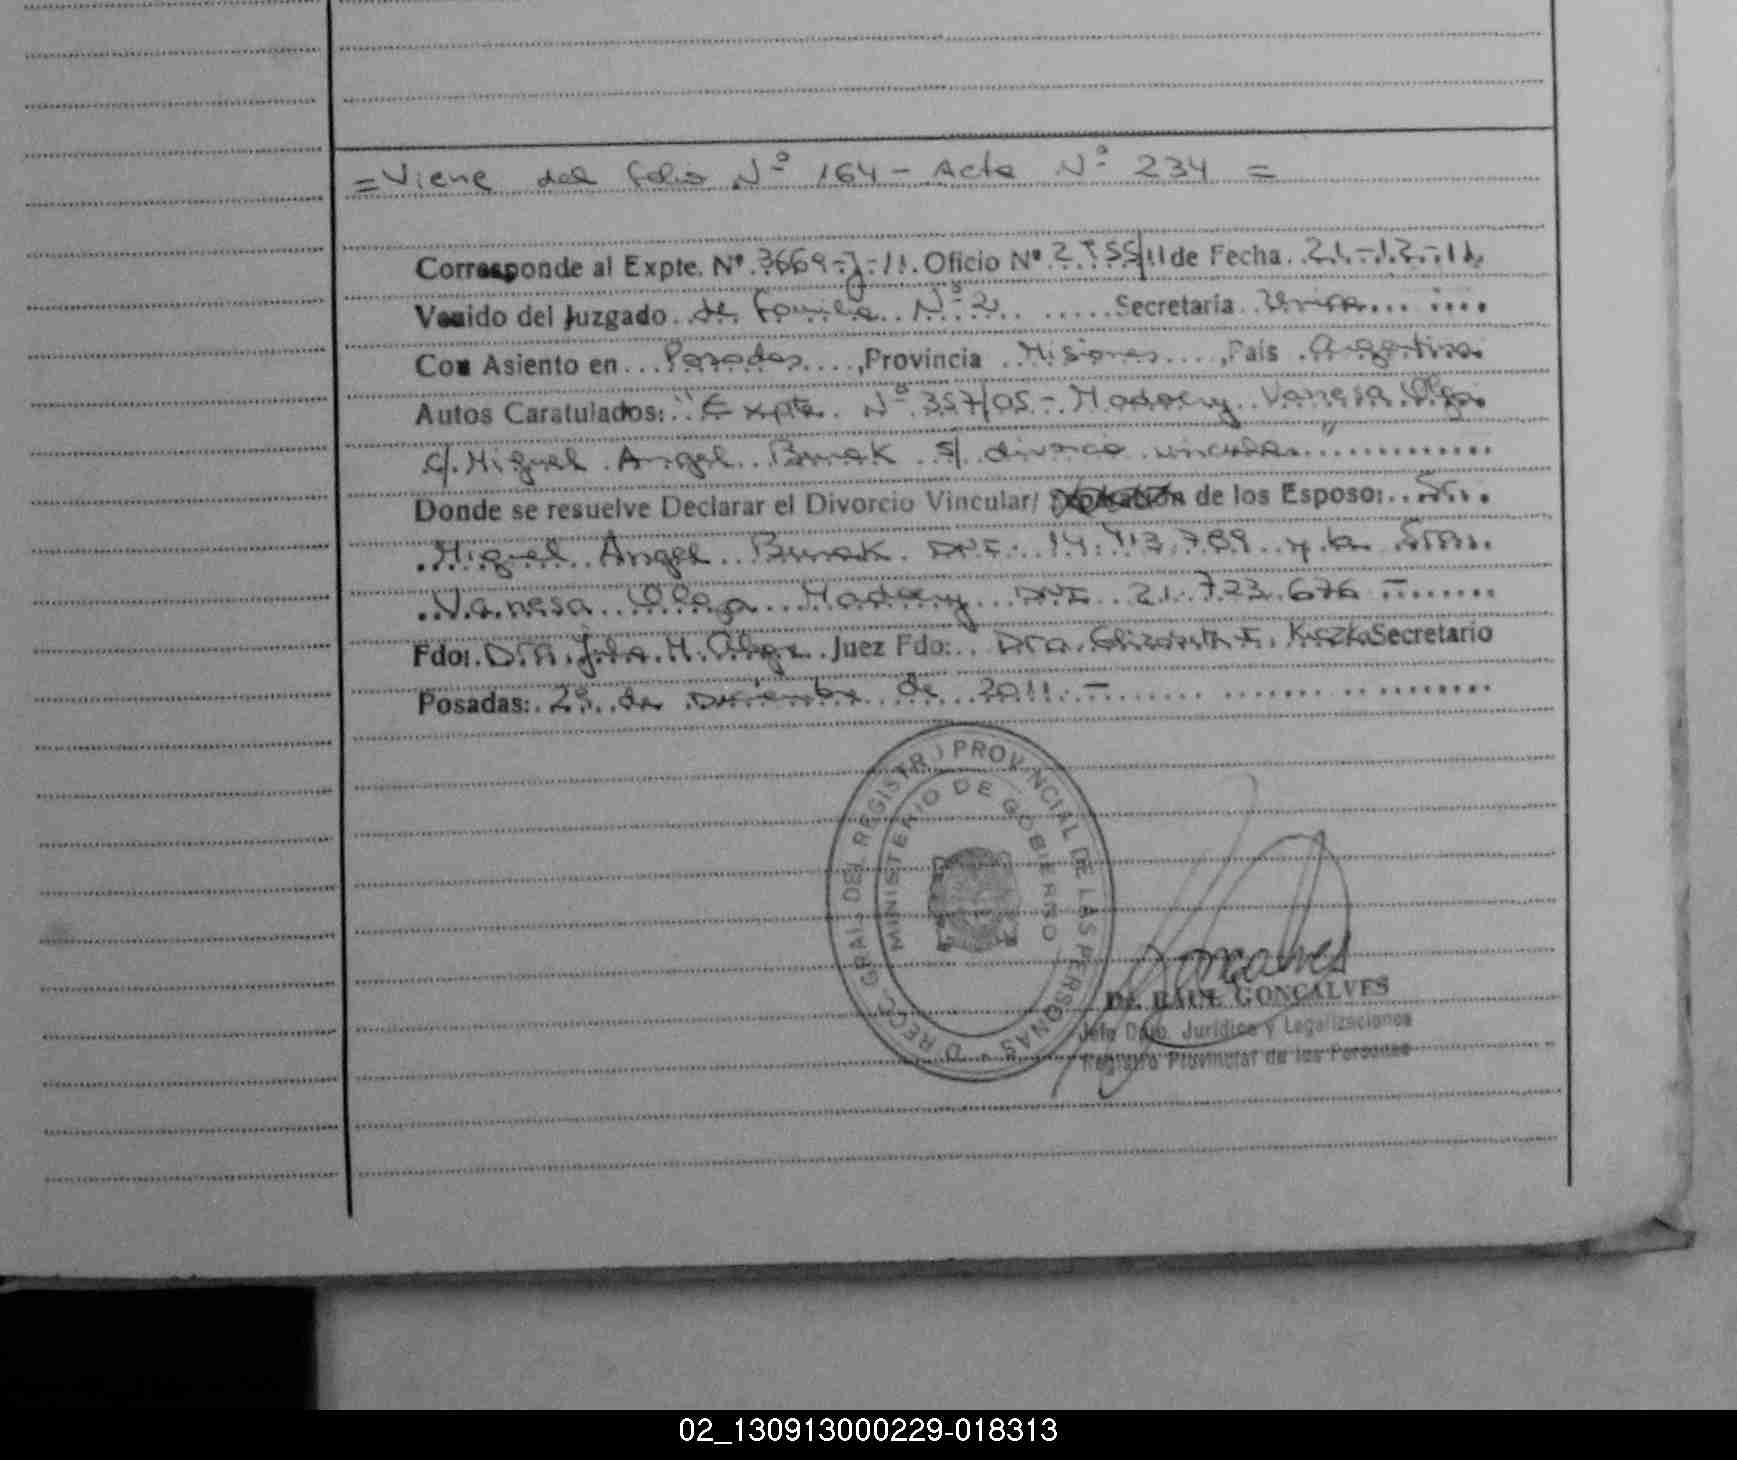 = Viene del folio Nº 164 - Acta Nº 234 =
Corresponde al Expte. Nº 3669-J-11. Oficio Nº 2755/11 de Fecha 21-12-11
Venido del Juzgado de Familia Nº 2 Secretaría Unica
Con Asiento en Posadas, Provincia Misiones, País Argentina
Autos Caratulados: "Expte. Nº 357/05 - Madoery Vanesa Olga
c/ Miguel Angel Burak s/ divorcio vincular"
Donde se resuelve Declarar el Divorcio Vincular/ de los Esposo: Sr.
Miguel Angel Burak DNI 14.713.789 y la Sra.
Vanesa Olga Madoery DNI 21.723.676 -
Fdo: Dra. M. Juez Fdo: Dra. Elizabeth Secretario
Posadas: 29 de Diciembre de 2011 -
DIRECC. GRAL. DEL REGISTRO PROVINCIAL DE LAS PERSONAS
MINISTERIO DE GOBIERNO
Dr. RAUL GONCALVES
Jefe Dpto. Jurídico y Legalizaciones
Registro Provincial de las Personas
02_130913000229-018313